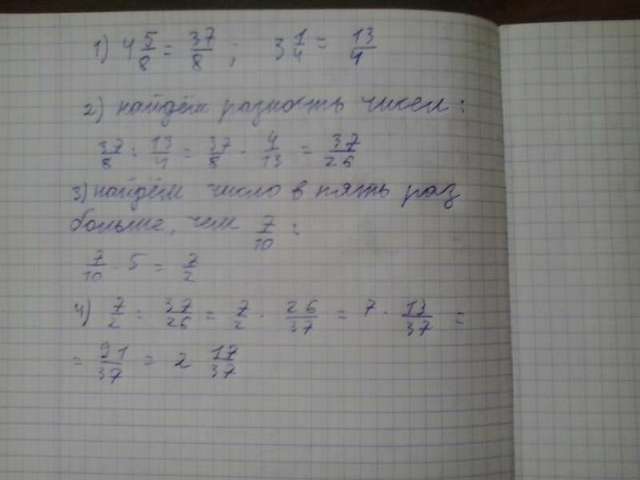 1) 4 5/8 = 37/8 ; 3 1/4 = 13/4
2) найдём разность чисел:
37/8 : 13/4 = 37/8 · 4/13 = 37/26
3) найдём число в пять раз
больше, чем 7/10 :
7/10 · 5 = 7/2
4) 7/2 : 37/26 = 7/2 · 26/37 = 7 · 13/37 =
= 91/37 = 2 17/37